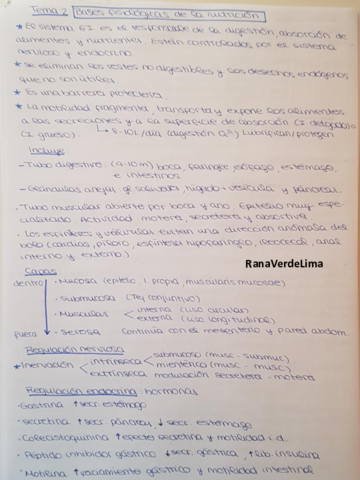 Tema 2 Bases fisiológicas de la nutrición
* El sistema GI es el responsable de la digestión, absorción de
alimentos y nutrientes. Están controlados por el sistema
nervioso y endocrino
* Se eliminan los restos no digestibles y los desechos endógenos
que no son útiles
* Es una barrera protectora
* La motilidad fragmenta, transporta y expone los alimentos
a las secreciones y a la superficie de absorción (I. delgado) a
(I. grueso) 8-10L/día (digestión Q) Lubrifican/protegen
Incluye
- Tubo digestivo: (9-10m) boca, faringe, esófago, estómago
e intestinos
- Glándulas anejas: gl salivares, hígado + vesícula y páncreas
· Tubo muscular abierto por boca y ano. Epitelio muy espe-
cializado Actividad motora, secretora y absortiva
· Los esfínteres y válvulas evitan una dirección anómala del
bolo (cardias, píloro, esfínter hipofaríngeo, ileocecal, anal
interno y externo)
RanaVerdeLima
Capas
dentro · Mucosa (epitelio, l. propia, muscularis mucosae)
· Submucosa (Tej conjuntivo)
· Muscular interna (liso circular)
externa (liso longitudinal)
fuera · Serosa Continúa con el mesenterio y pared abdom.
Regulación nerviosa
* Inervación intrínseca submucoso (musc - submuc)
mientérico (musc - musc)
extrínseca modulación secretora - motora
Regulación endocrina: hormonas
· Gastrina ↑ secr. estómago
· secretina ↑ secr páncreas, ↓ secr. estómago
· Colecistoquinina ↑ efecto secretina y motilidad i.d.
· Péptido inhibidor gástrico ↓ secr. gástrica, ↑ lib. insulina
· Motilina ↑ vaciamiento gástrico y motilidad intestinal